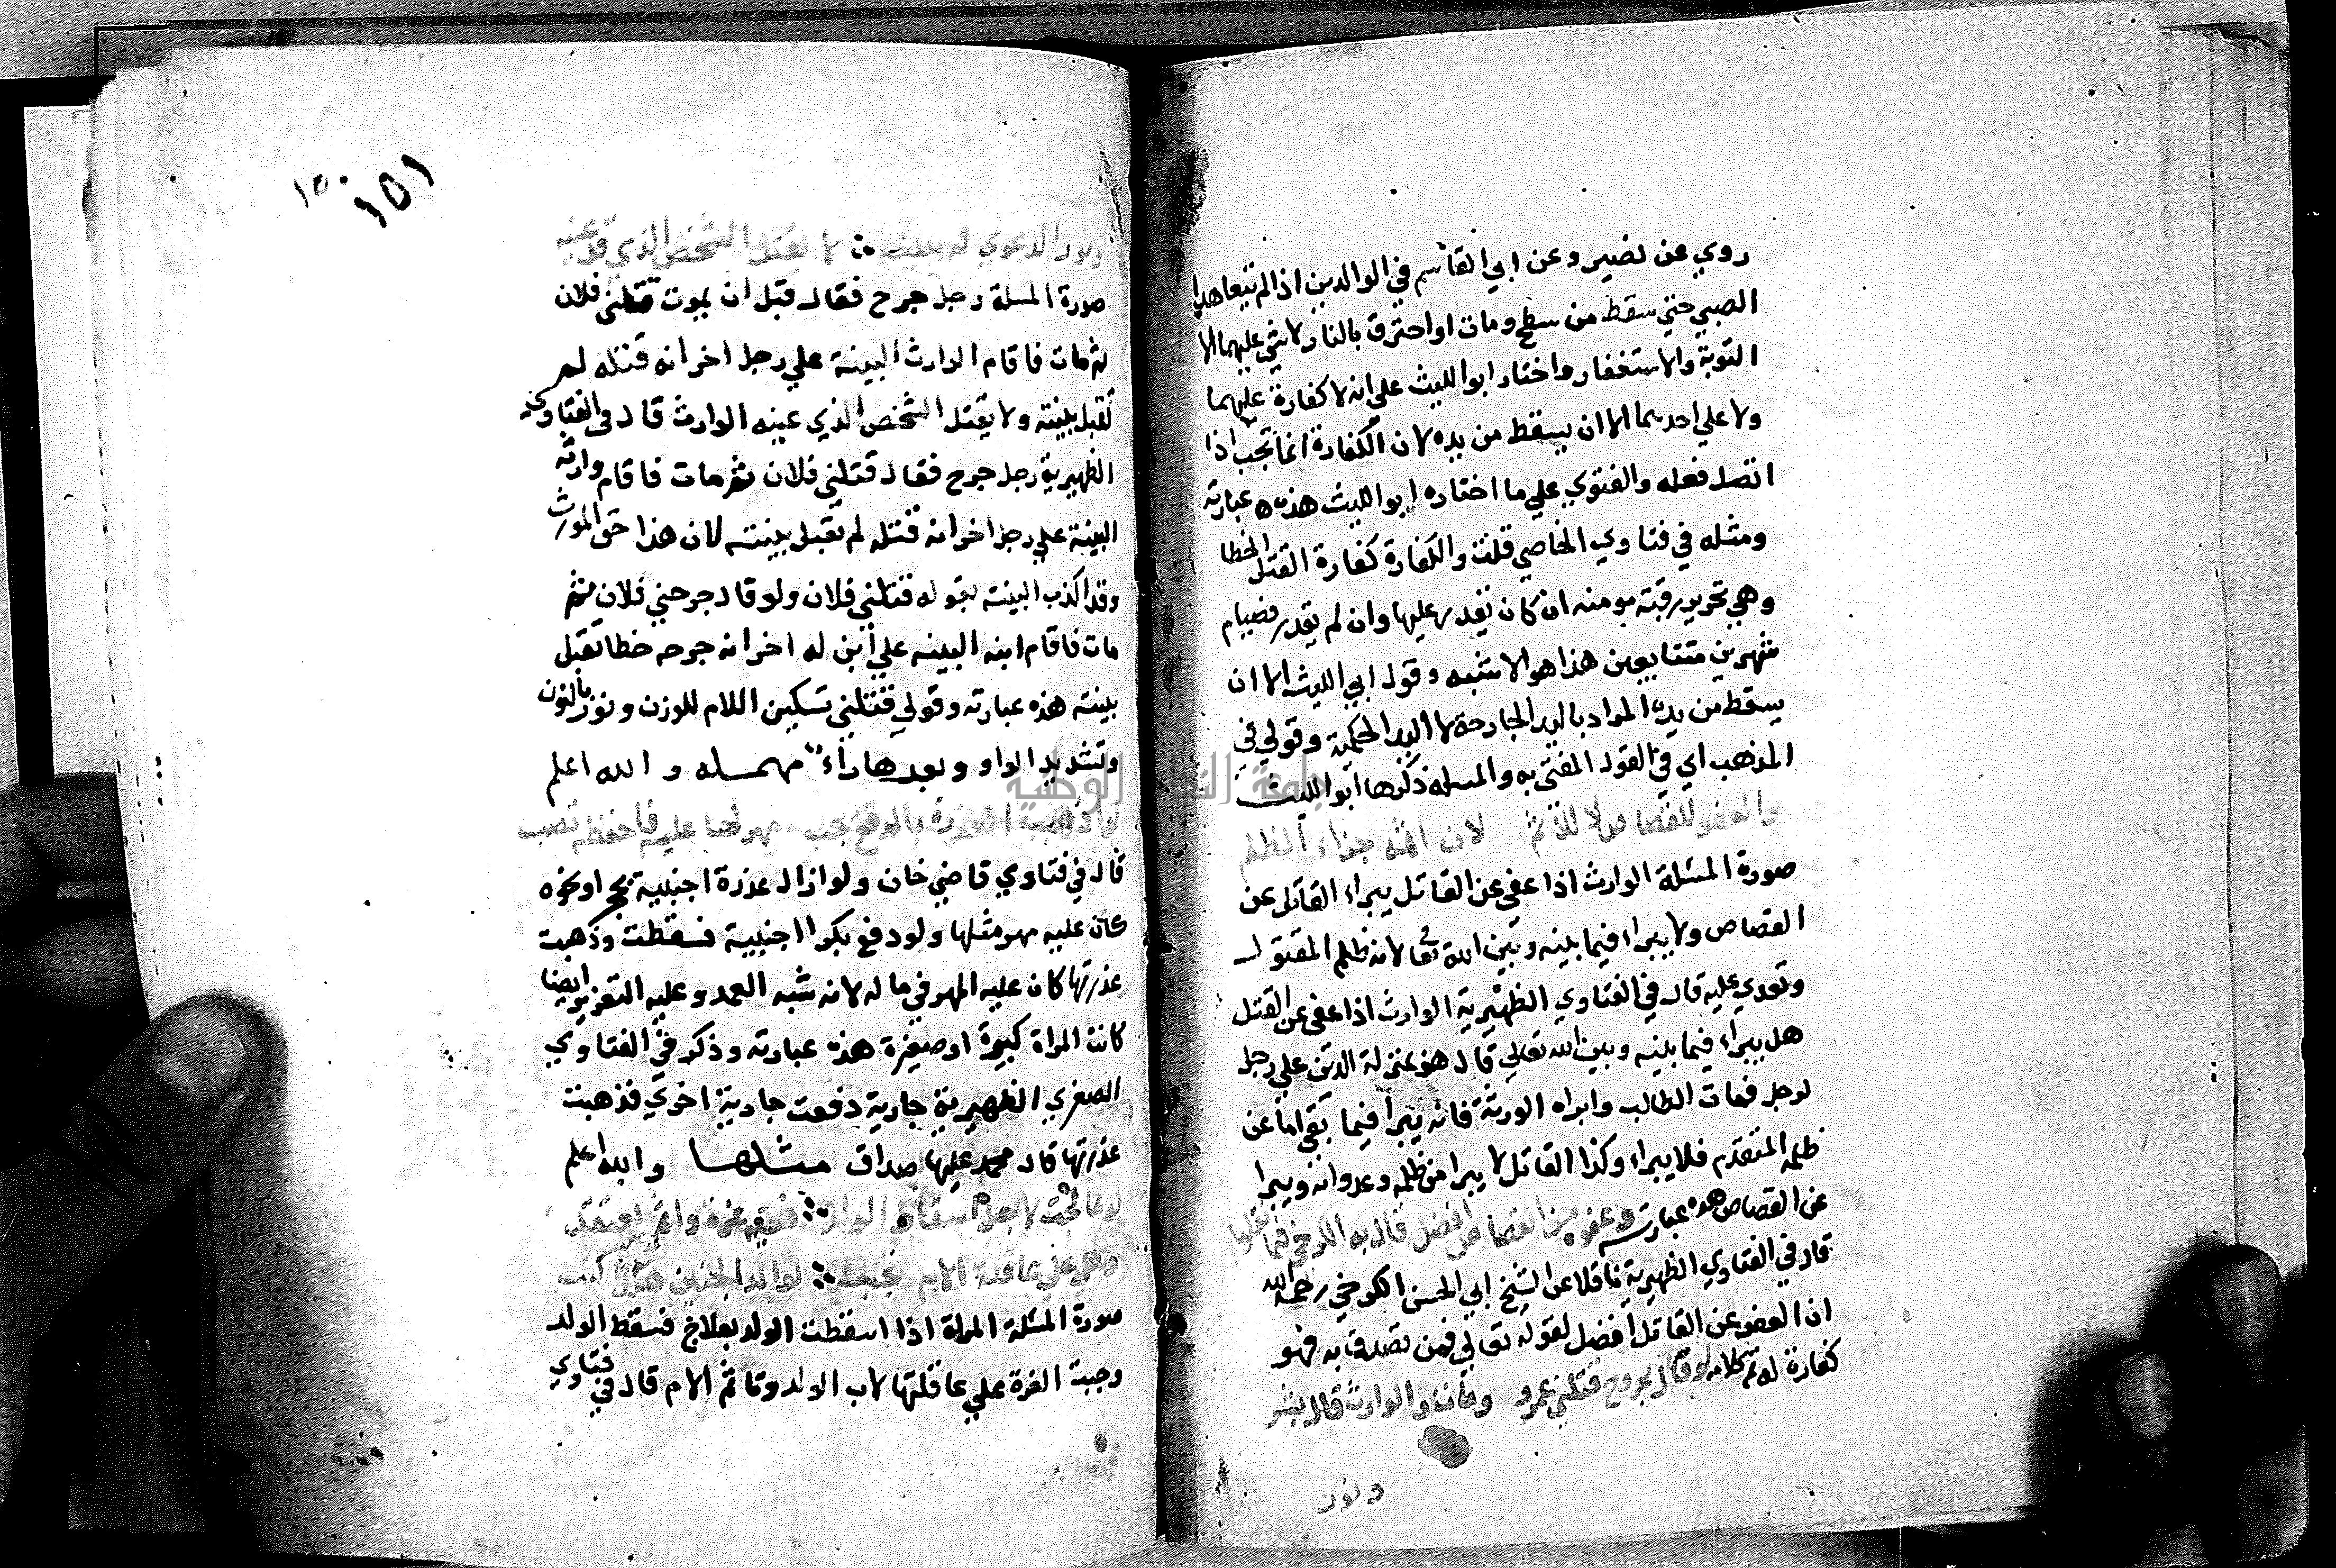 روي عن نصير وعن ابي القاسم في الوالدين اذا لم يتعاهدا
الصبي حتي سقط من سطح ومات او احترق بالنار لا شي عليهما الا
التوبة والاستغفار واختار ابو الليث علي انه لا كفارة عليهما
ولا علي احدهما الا ان يسقط من يده لان الكفارة انما تجب اذا
اتصل فعله والفتوي علي ما اختاره ابو الليث هذه عبارته
ومثله في فتاوي الخاصي قلت والكفارة كفارة القتل الخطا
وهي تحرير رقبة مومنه ان كان يقدر عليها وان لم يقدر فصيام
شهرين متتابعين هذا هو الاشبه وقول ابي الليث الا ان
يسقط من يده المراد باليد الجارحة لا اليد الحكمية وقولي في
المذهب اي في القول المفتي به والمسلة ذكرها ابو الليث
والعفو للقصاص لا للاثم لان اثمه جزاء الظلم
صورة المسئلة الوارث اذا عفي عن القاتل يبراء القاتل عن
القصاص ولا يبراء فيما بينه وبين الله تعا لانه ظلم المقتول
وتعدي عليه قال في الفتاوي الظهيرية الوارث اذا عفي عن القتل
هل يبراء فيما بينه وبين الله تعالي قال هو بمنزلة الدين علي رجل
لرجل فمات الطالب وابراه الورثة فانه يبرا فيما بقي اما عن
ظلمه المتقدم فلا يبراء وكذا القاتل لا يبرا من ظلمه وعدوانه ويبرا
عن القصاص هذه عبارته وعفوه من القصاص افضل قال به الكرخي فيما
قال في الفتاوي الظهيرية ناقلا عن الشيخ ابي الحسن الكرخي رحمه الله
ان العفو عن القاتل افضل لقوله تعالي فمن تصدق به فهو
كفارة له تم كلامه لو قال مجروح قتلني عمرو ومات والوارث قال بشر
ونور
١٥٠
١٥١
ونور الدعوي له ببينة لا يقتل الشخص الذي قد عينه
صورة المسلة رجل جرح فقال قبل ان يموت قتلني فلان
ثم مات فاقام الوارث البينة علي رجل اخر انه قتله لم
تقبل بينته ولا يقتل الشخص الذي عينه الوارث قال في الفتاوي
الظهيرية رجل جرح فقال قتلني فلان ثم مات فاقام وارثه
البينة علي رجل اخر انه قتله لم تقبل بينته لان هذا حق المورث
وقد اكذب البينة بقوله قتلني فلان ولو قال جرحني فلان ثم
مات فاقام ابنه البينه علي ابن له اخر انه جرحه خطا تقبل
بينته هذه عبارته وقولي قتلني تسكين اللام للوزن ونور بالنون
وتشديد الواو وبعدها راء مهمله والله اعلم
لو اذهبت العذرة بالدفع يجب مهر لها عليه فاحفظه تصب
قال في فتاوي قاضي خان ولو ازال عذرة اجنبية بحجر او نحوه
كان عليه مهر مثلها ولو دفع بكرا اجنبية فسقطت وذهبت
عذرتها كان عليه المهر في ماله لانه شبه العمد وعليه التعزير ايضا
كانت المراة كبيرة او صغيرة هذه عبارته وذكر في الفتاوي
الصغري الظهيرية جارية دفعت جارية اخري فذهبت
عذرتها قال محمد عليها صداق مثلها والله اعلم
لو عالجت لاجل اسقاط الولد
وهي علي عاقلة الام تجب لوالد الجنين
صورة المسئلة المراة اذا اسقطت الولد بعلاج فسقط الولد
وجبت الغرة علي عاقلتها لاب الولد وتاثم الام قال في فتاوي